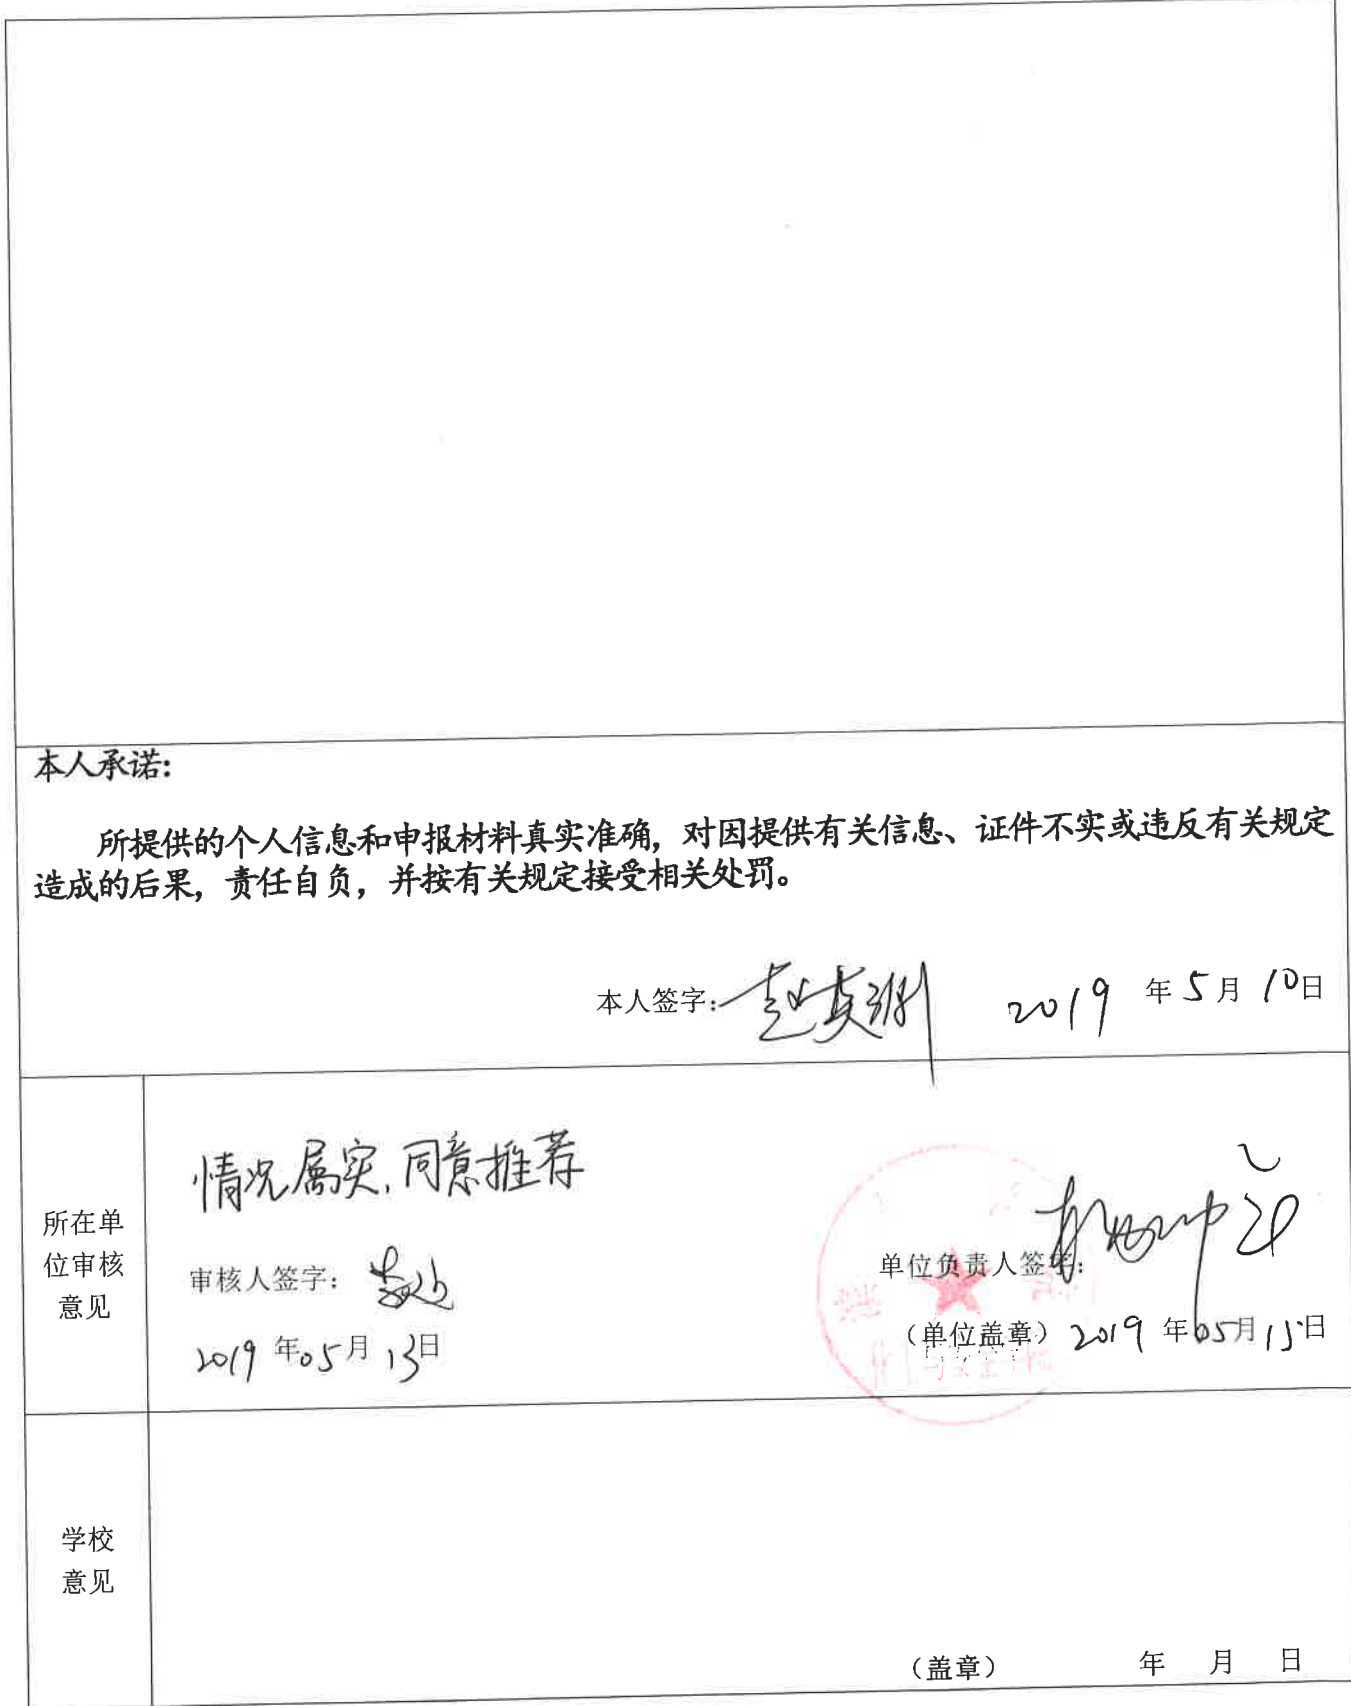 本人承诺：
所提供的个人信息和申报材料真实准确，对因提供有关信息、证件不实或违反有关规定
造成的后果，责任自负，并按有关规定接受相关处罚。
本人签字： 2019 年 5 月 10日
所在单
位审核
意见
情况属实，同意推荐
审核人签字：
2019 年05月 13日
单位负责人签字：
（单位盖章） 2019 年05月15日
学校
意见
（盖章） 年 月 日